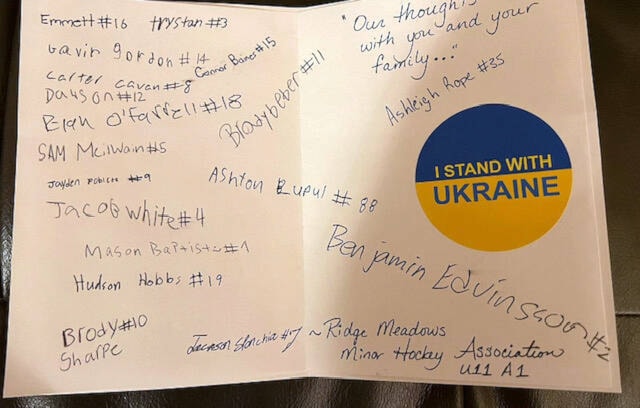 Emmett #16
trystan #3
Gavin gordon #14
Connor Baines #15
Carter Cavan #8
Dawson #12
Brody beber #11
O'Farrell #18
SAM McilWain #5
Jayden #9
Ashton Lupul #88
Jacob White #4
Mason Baptiste #1
Hudson Hobbs #19
Brody #10
Sharpe
Jackson #7
"Our thoughts
with you and your
family..."
Ashleigh Rope #35
I STAND WITH
UKRAINE
Benjamin Edvinsson #2
~ Ridge Meadows
Minor Hockey Association
U11 A1